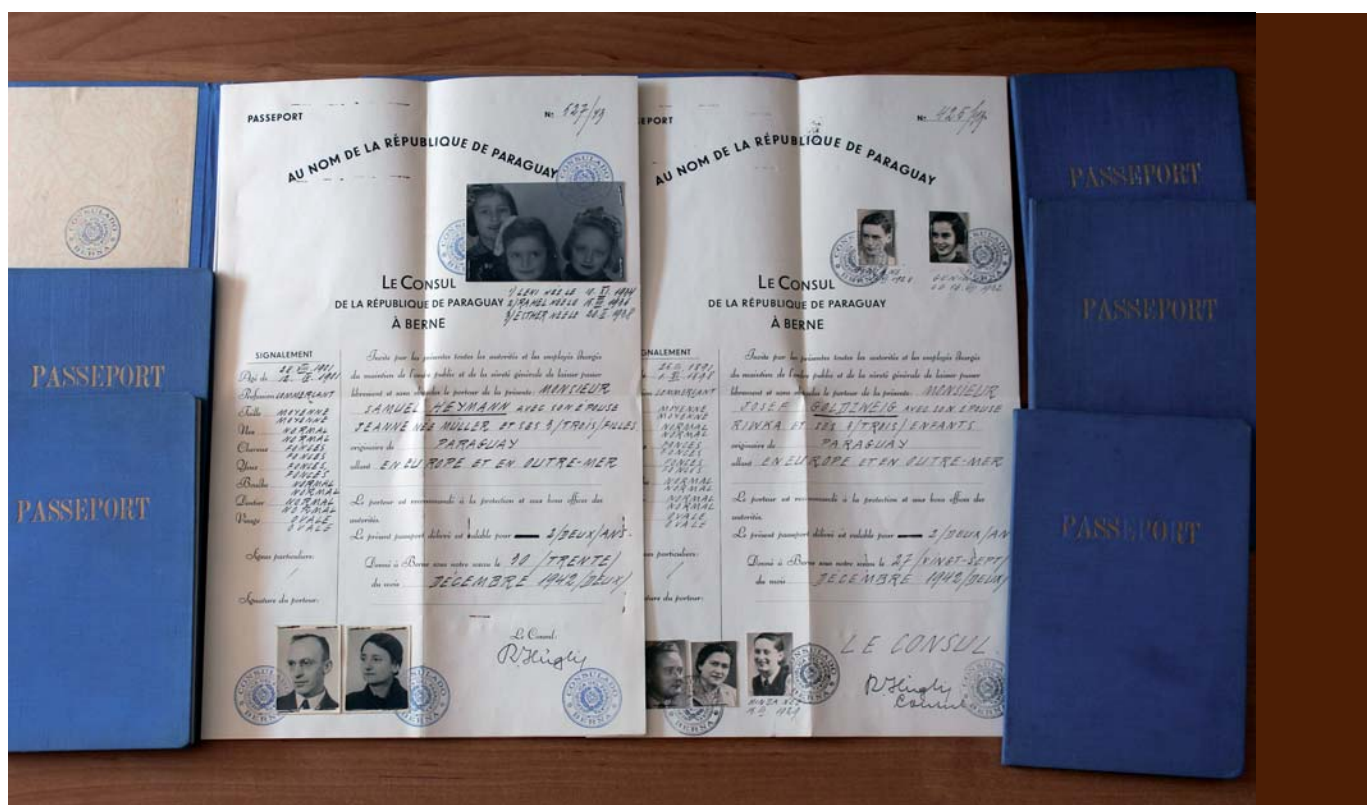 CONSULADO BERNA
PASSEPORT
PASSEPORT
PASSEPORT
No 527/43
AU NOM DE LA RÉPUBLIQUE DE PARAGUAY
CONSULADO BERNA
LE CONSUL
DE LA RÉPUBLIQUE DE PARAGUAY
À BERNE
SIGNALEMENT
Agé de
Profession COMMERÇANT
Taille MOYENNE
MOYENNE
Nez NORMAL
NORMAL
Cheveux FONCÉS
FONCÉS
Yeux FONCÉS
FONCÉS
Bouche NORMAL
NORMAL
NORMAL
NORMAL
Visage OVALE
OVALE
Signes particuliers:
/
Signature du porteur:
Invite par les présentes toutes les autorités et les employés chargés
du maintien de l'ordre public et de la sûreté générale de laisser passer
librement et sans obstacles le porteur de la présente: MONSIEUR
SAMUEL HEYMANN AVEC SON ÉPOUSE
JEANNE NÉE MULLER ET SES 3/TROIS/FILLES
originaire de PARAGUAY
allant EN EUROPE ET EN OUTRE-MER
Le porteur est recommandé à la protection et aux bons offices des
autorités.
Le présent passeport délivré est valable pour 2/DEUX/ANS.
Donné à Berne sous notre sceau le 30 /TRENTE/
du mois DÉCEMBRE 1942/DEUX/
Le Consul:
R. Hügly
CONSULADO BERNA
CONSULADO BERNA
CONSULADO BERNA
EPORT
AU NOM DE LA RÉPUBLIQUE DE PARAGUAY
LE CONSUL
DE LA RÉPUBLIQUE DE PARAGUAY
À BERNE
GNALEMENT
COMMERÇANT
MOYENNE
MOYENNE
NORMAL
NORMAL
FONCÉS
FONCÉS
NORMAL
OVALE
OVALE
particuliers:
/
ture du porteur:
Invite par les présentes toutes les autorités et les employés chargés
du maintien de l'ordre public et de la sûreté générale de laisser passer
librement et sans obstacles le porteur de la présente: MONSIEUR
JOSEF GOLDZWEIG AVEC SON ÉPOUSE
RIWKA ET SES 3/TROIS/ENFANTS
originaire de PARAGUAY
allant EN EUROPE ET EN OUTRE-MER
Le porteur est recommandé à la protection et aux bons offices des
autorités.
Le présent passeport délivré est valable pour 2/DEUX/AN
Donné à Berne sous notre sceau le 27 /VINGT-SEPT/
du mois DECEMBRE 1942/DEUX/
LE CONSUL
R. Hügly
CONSULADO BERNA
PASSEPORT
PASSEPORT
PASSEPORT